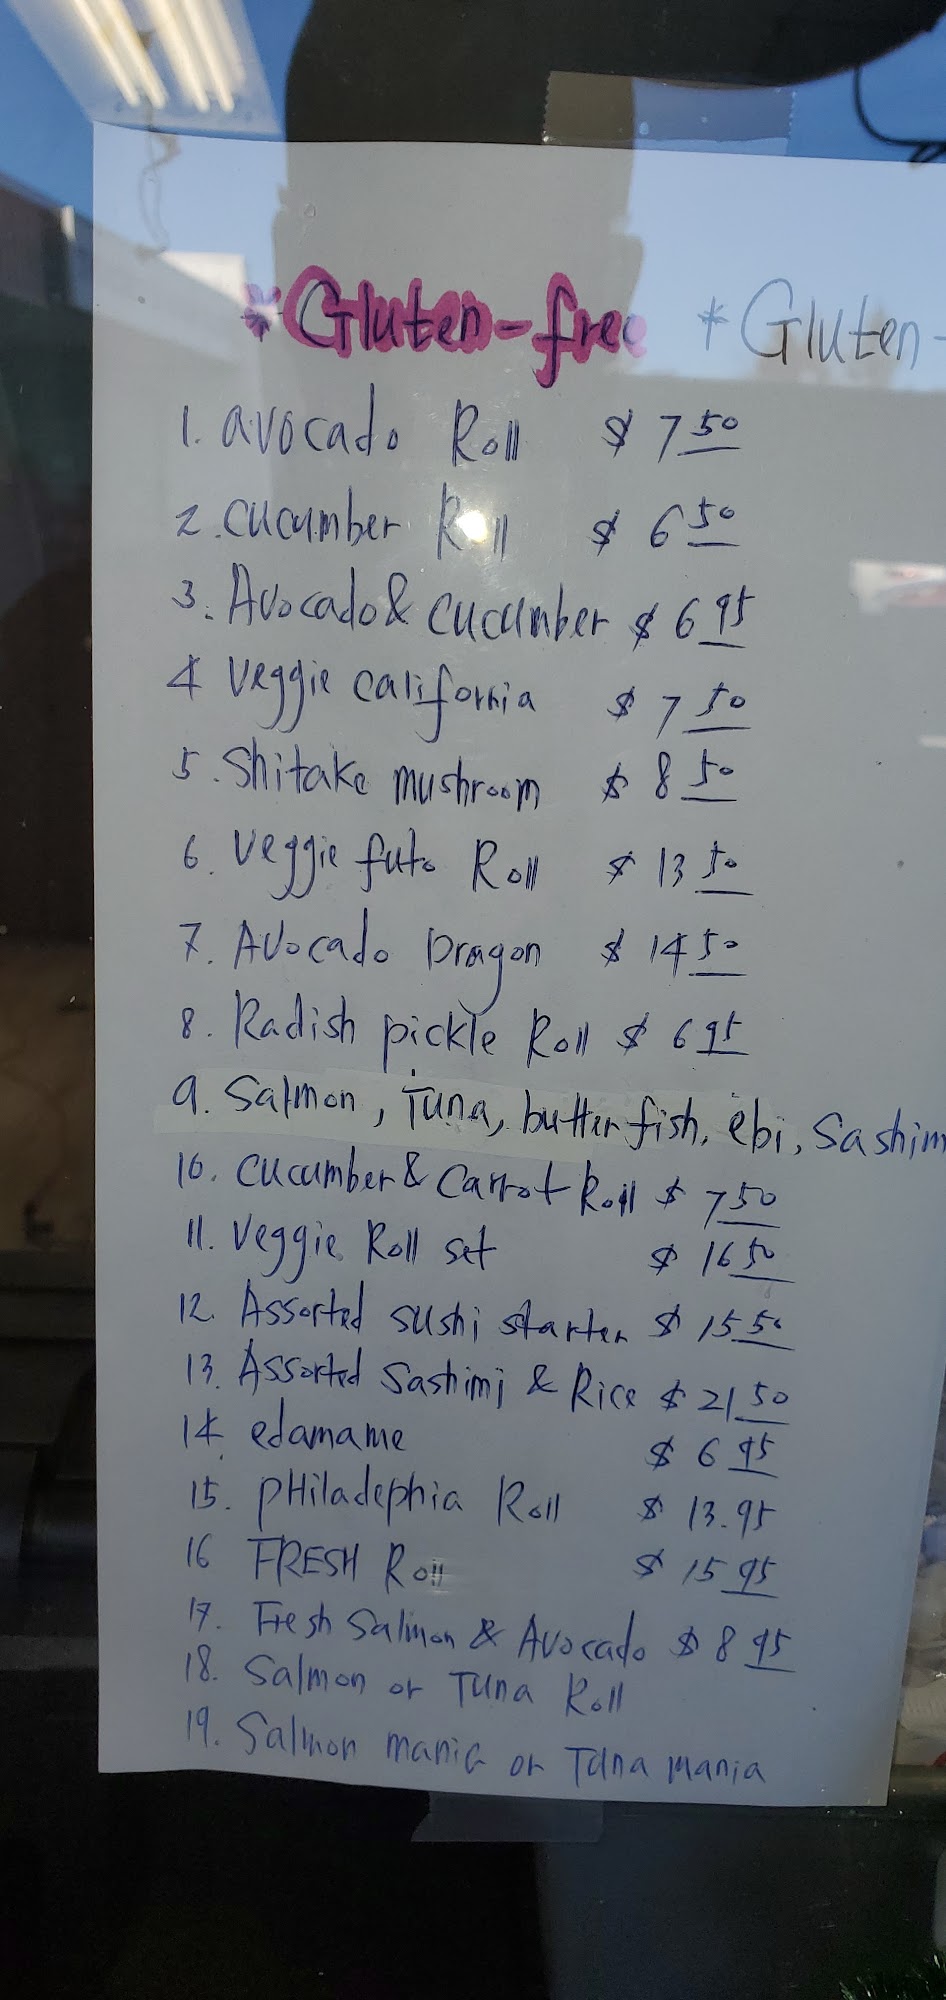 *Gluten-free *Gluten-
1. avocado Roll $ 7 50
2. cucumber Roll $ 6 50
3. Avocado & cucumber $ 6 95
4 Veggie california $ 7 50
5. Shitake mushroom $ 8 50
6. Veggie futo Roll $ 13 50
7. Avocado Dragon $ 14 50
8. Radish pickle Roll $ 6 95
9. Salmon, Tuna, butter fish, ebi, Sashim
10. cucumber & Carrot Roll $ 7 50
11. Veggie Roll set $ 16 50
12. Assorted sushi starter $ 15 50
13. Assorted Sashimi & Rice $ 21 50
14. edamame $ 6 95
15. pHiladephia Roll $ 13.95
16 FRESH Roll $ 15 95
17. Fresh Salmon & Avocado $ 8 95
18. Salmon or Tuna Roll
19. Salmon mania or Tuna mania